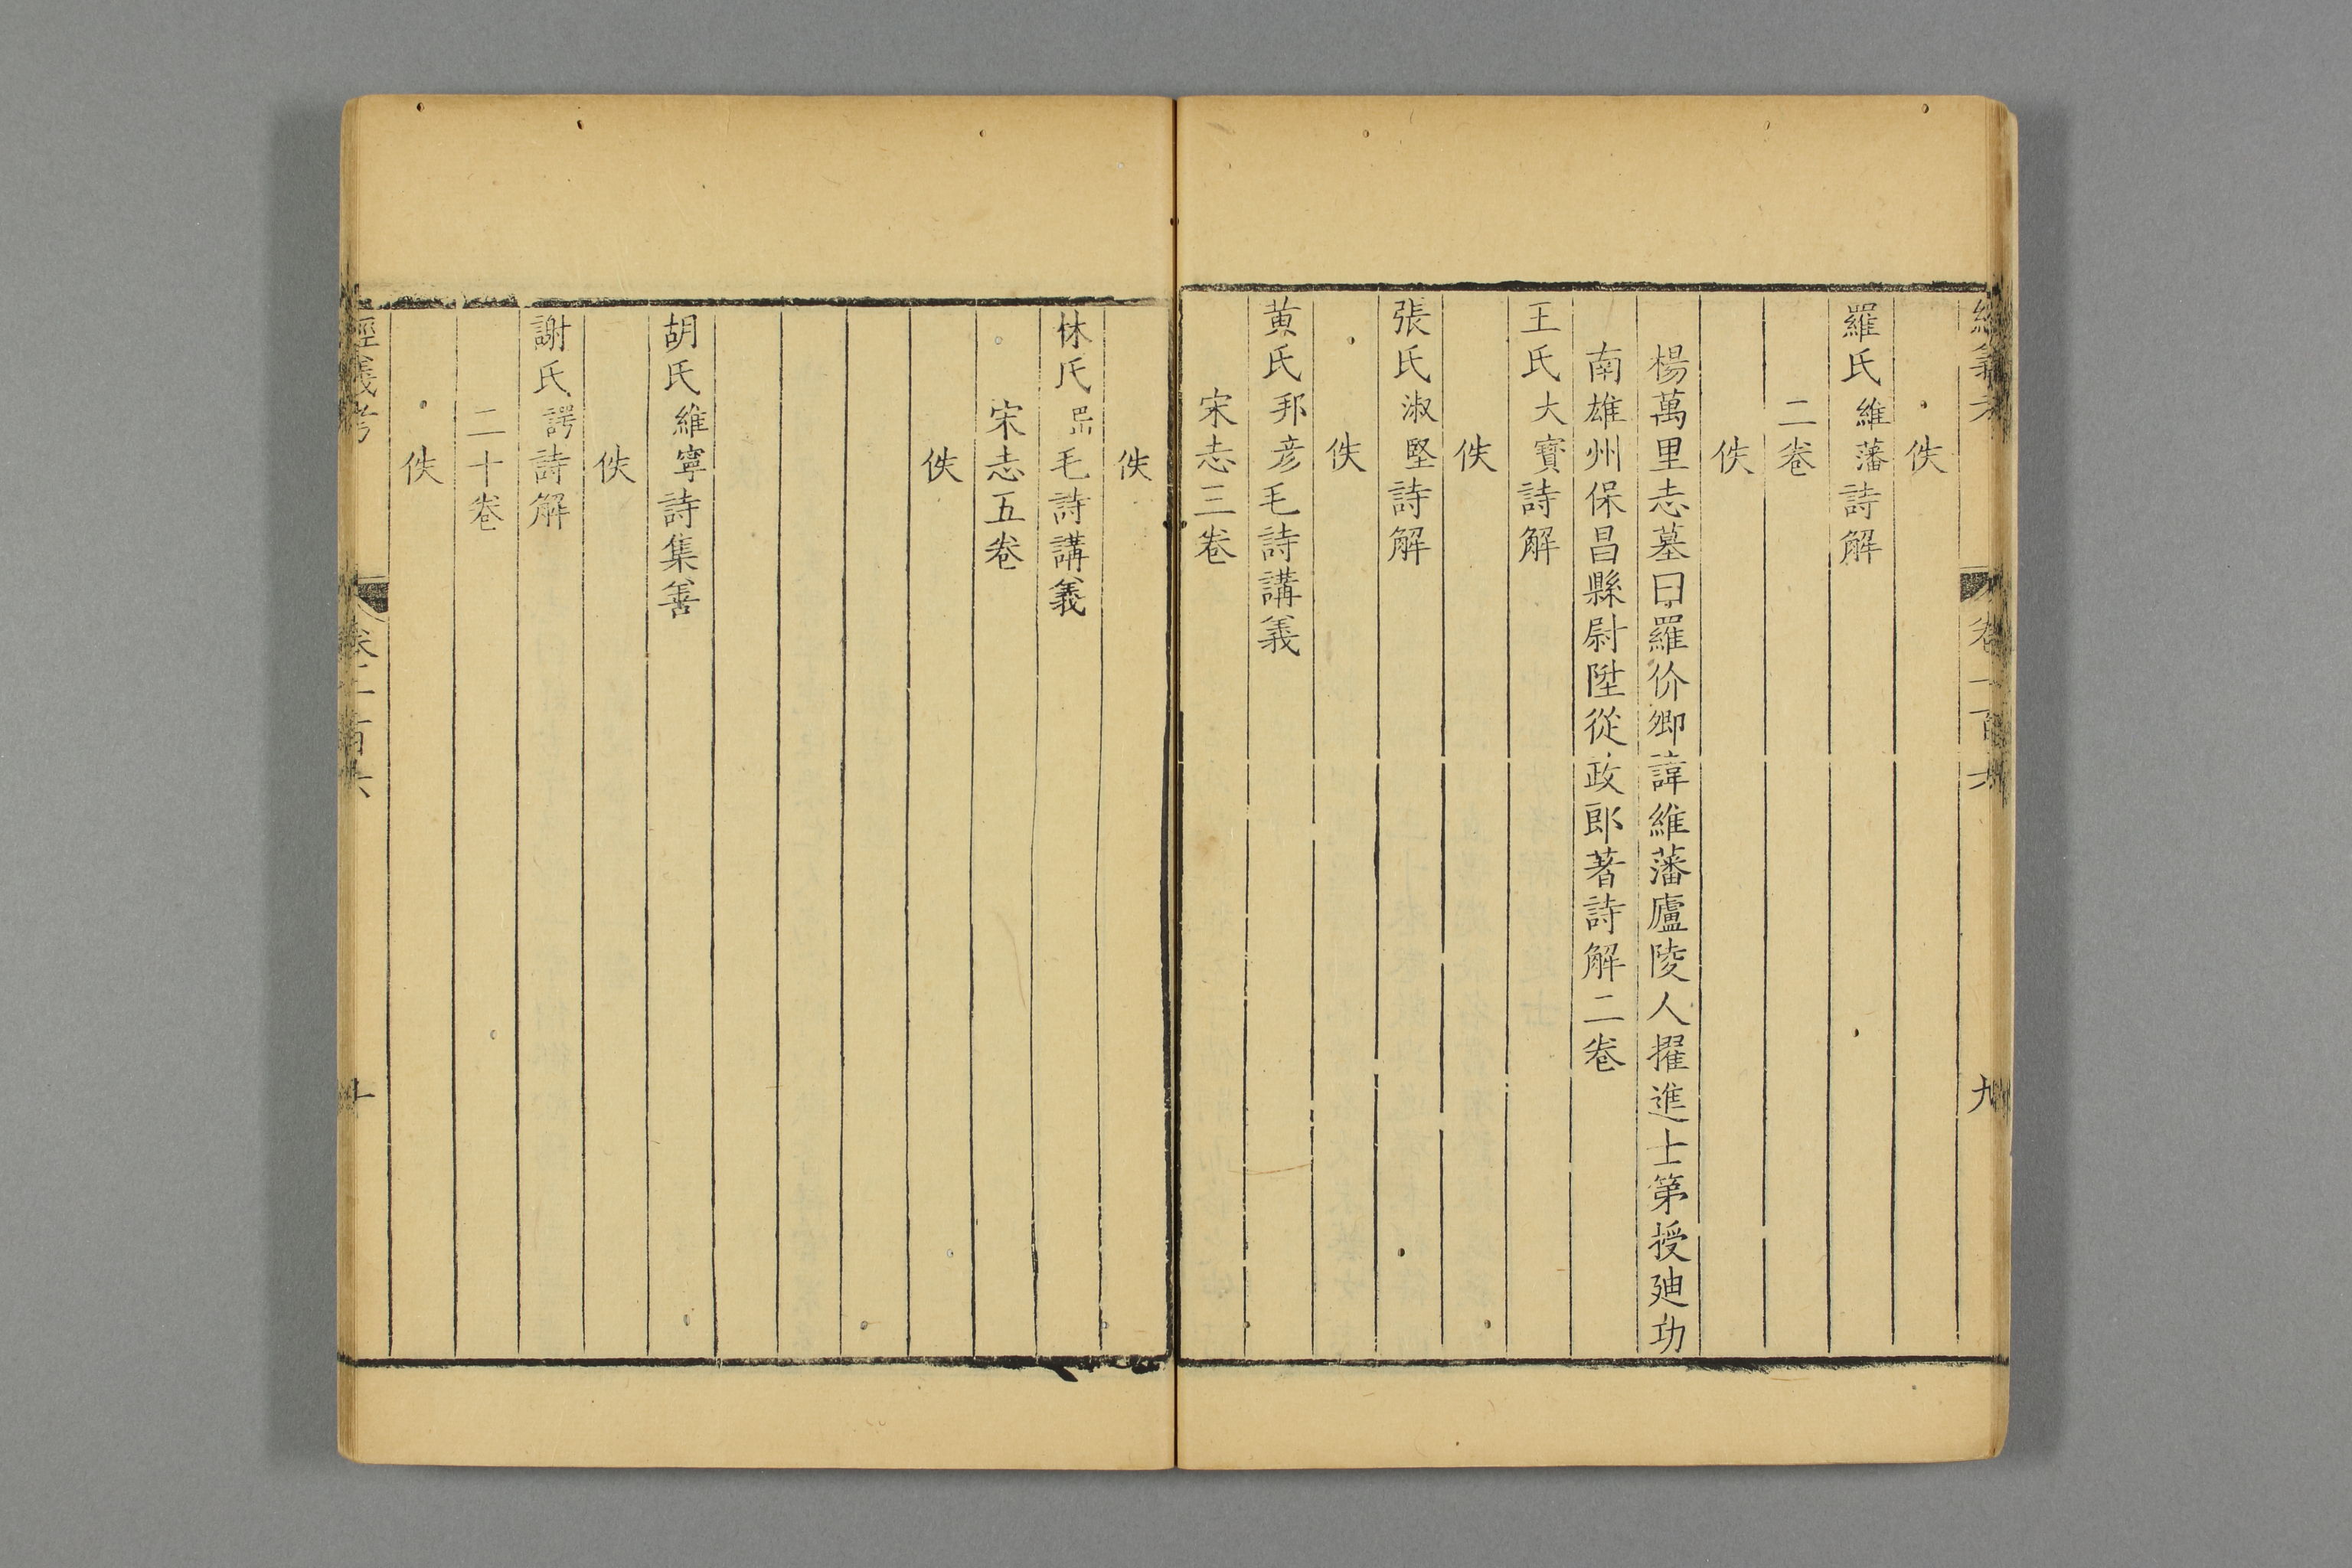 經義考 卷一百六 九
佚
羅氏維藩詩解
二卷
佚
楊萬里志墓曰羅价卿諱維藩廬陵人擢進士第授廸功
南雄州保昌縣尉陞從政郎著詩解二卷
王氏大寶詩解
佚
張氏淑堅詩解
佚
黄氏邦彦毛詩講義
宋志三卷
佚
林氏喦毛詩講義
宋志五卷
佚
胡氏維寧詩集善
佚
謝氏諤詩解
二十卷
佚
經義考 卷一百六 十